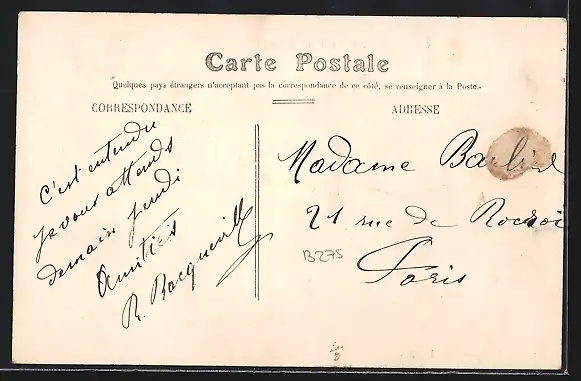 Carte Postale
Quelques pays étrangers n'acceptant pas la correspondance de ce côté, se renseigner à la Poste.
CORRESPONDANCE
ADRESSE
C'est entendu
je vous attends
demain jeudi
Amitiés
R. Bacqueville
Madame
21 rue de Rocroi
Paris
B275